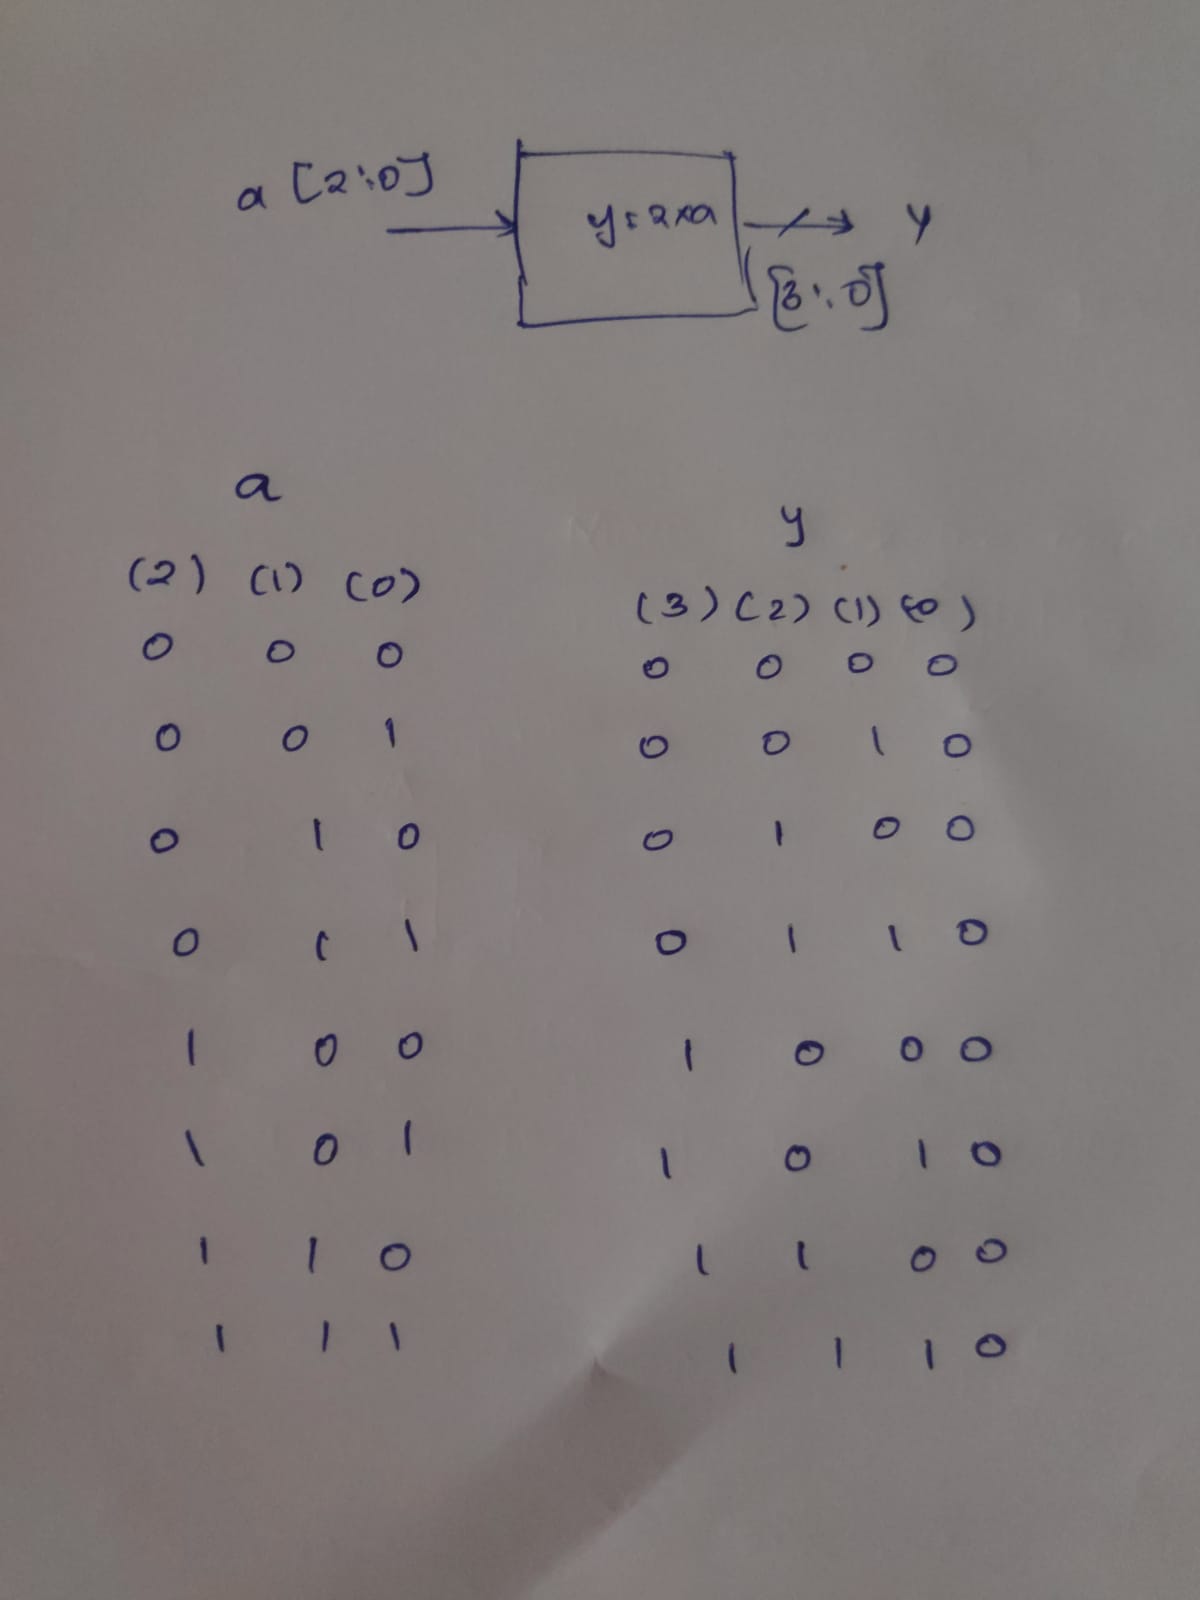 a [2:0]
y = 2xa
y
[3:0]
a
(2) (1) (0)
0 0 0
0 0 1
0 1 0
0 1 1
1 0 0
1 0 1
1 1 0
1 1 1
y
(3) (2) (1) (0)
0 0 0 0
0 0 1 0
0 1 0 0
0 1 1 0
1 0 0 0
1 0 1 0
1 1 0 0
1 1 1 0